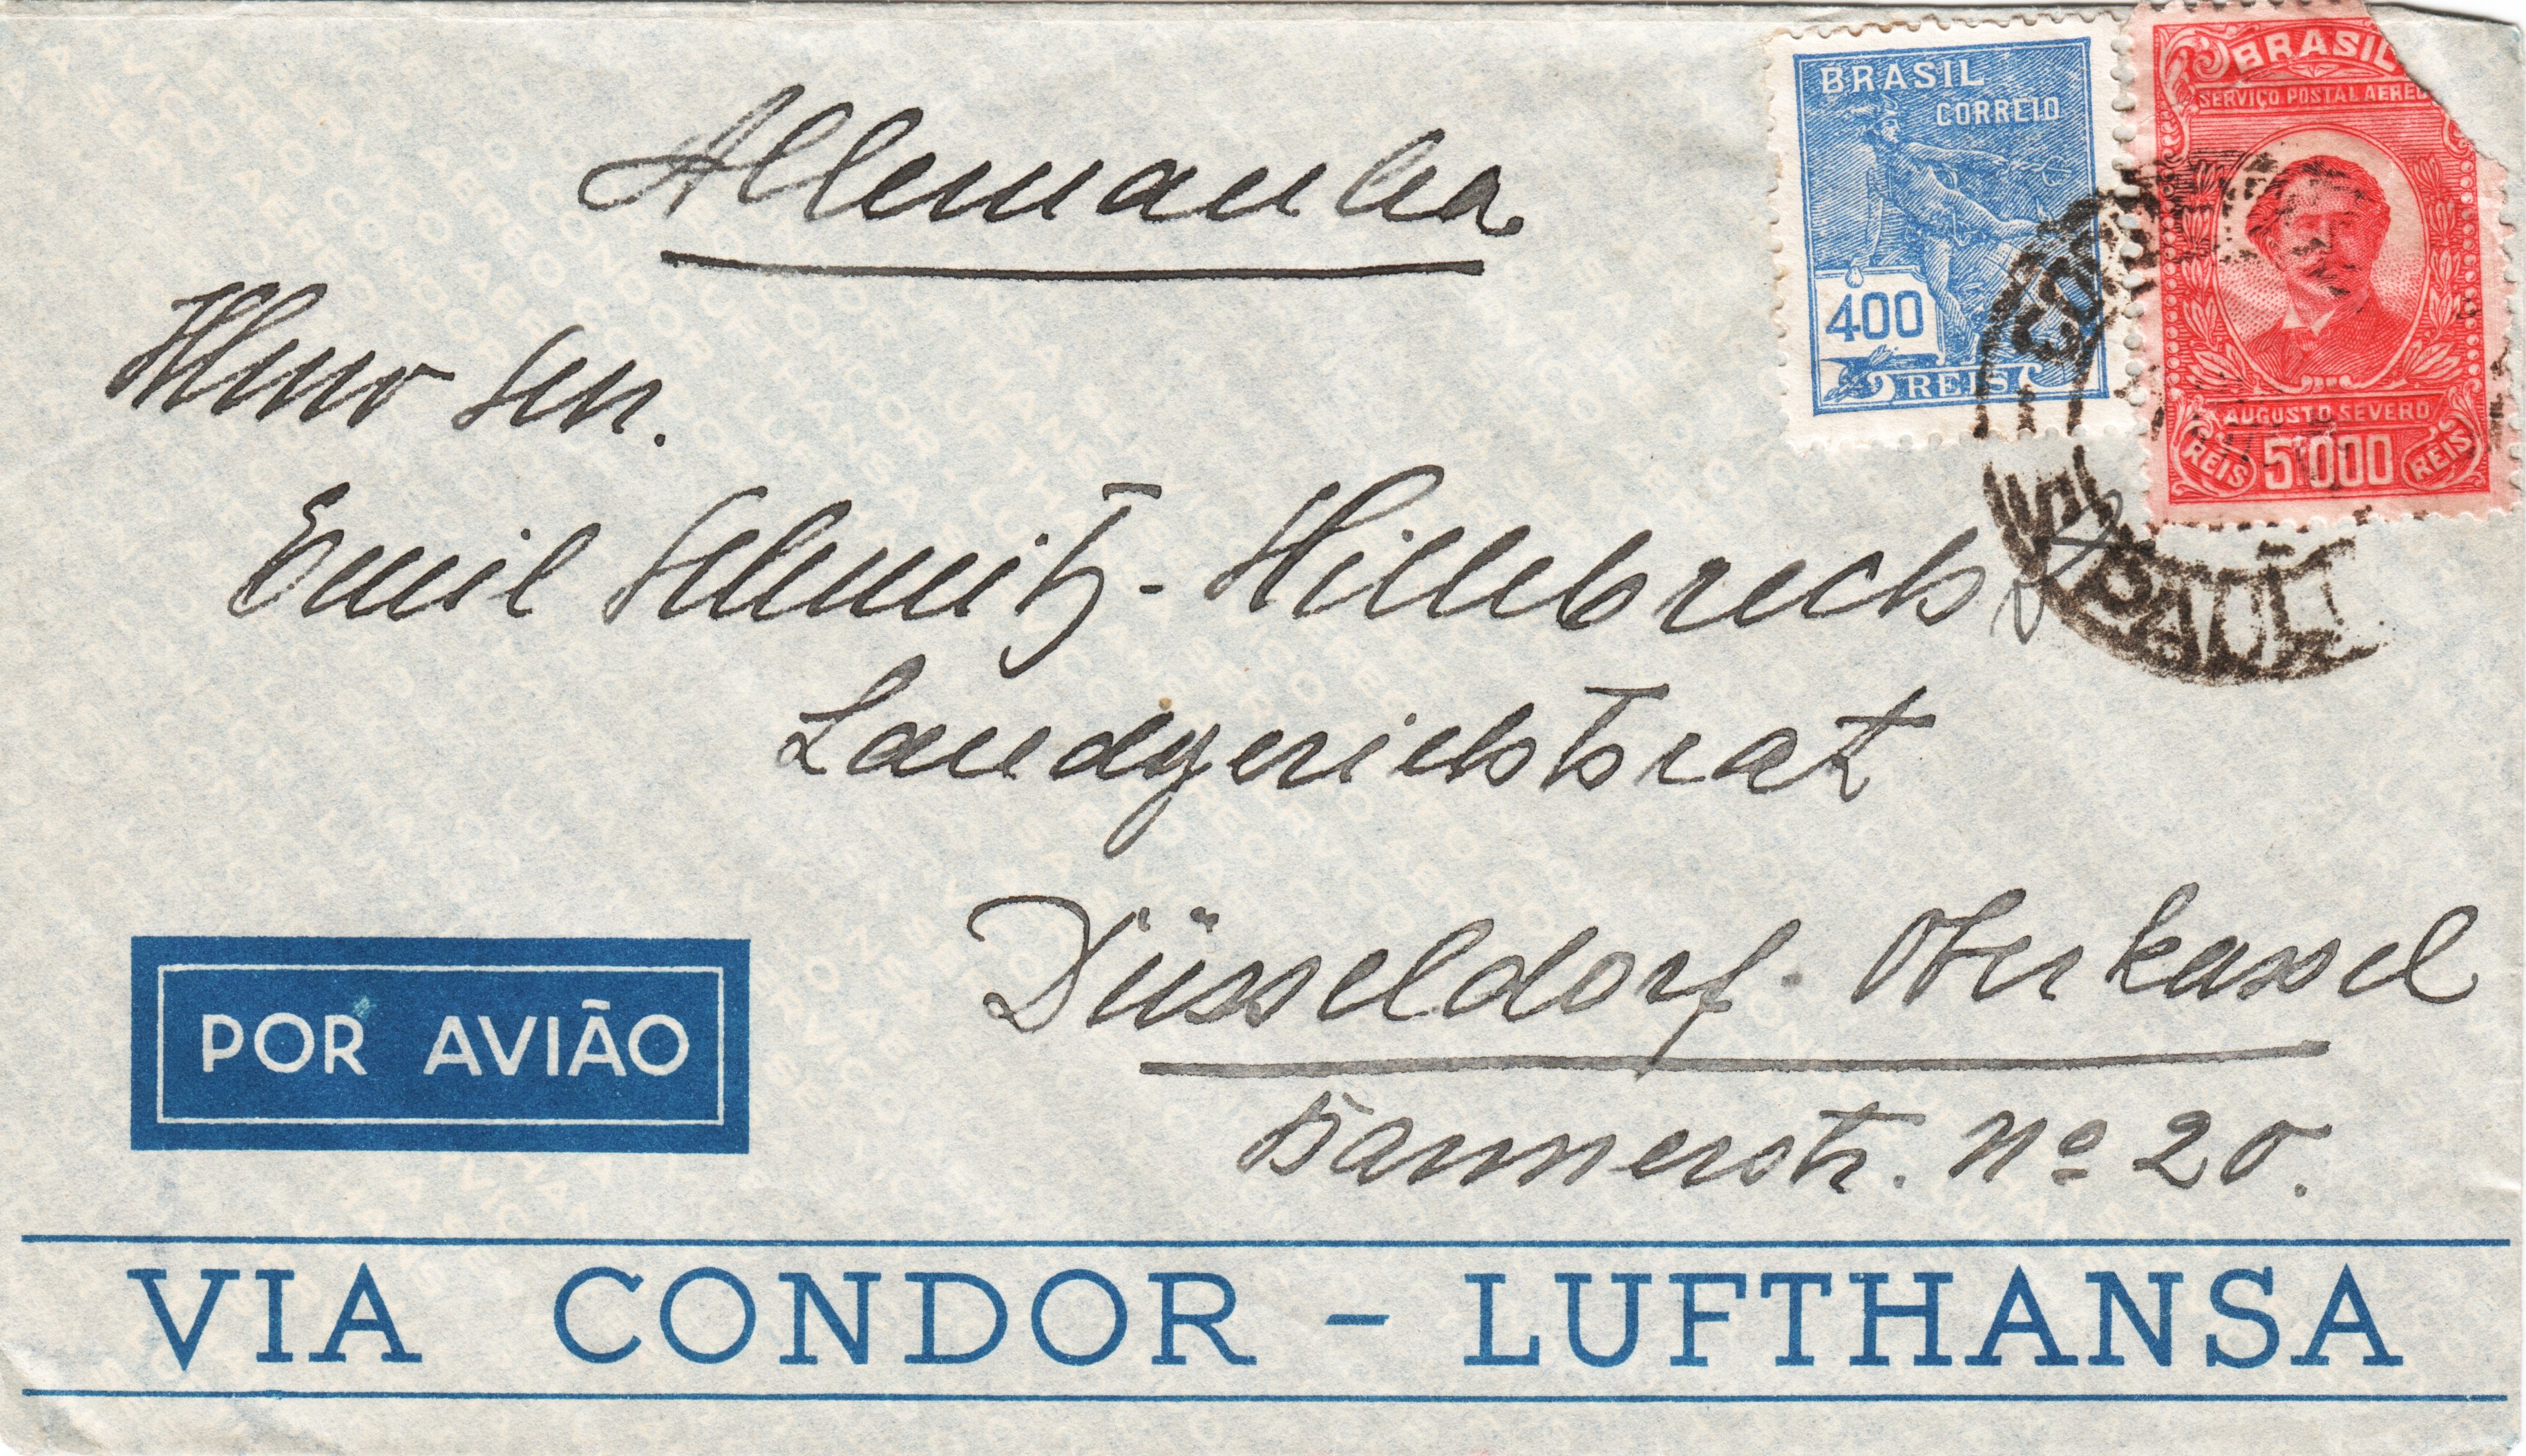 Allemanha
Illmo Snr.
Emil Schmitz-Hillebrecht
Landgerichtsrat
Düsseldorf-Oberkassel
Barmerstr. Nº 20.
BRASIL
CORREIO
400
REIS
BRASIL
SERVIÇO POSTAL AEREO
AUGUSTO SEVERO
REIS 5000 REIS
S. PAULO
POR AVIÃO
VIA CONDOR - LUFTHANSA